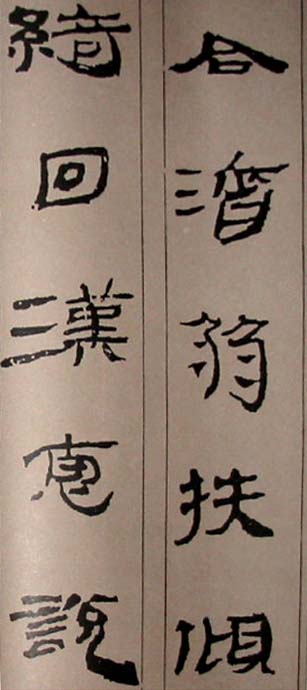 合濟弱扶傾
綺回漢惠說